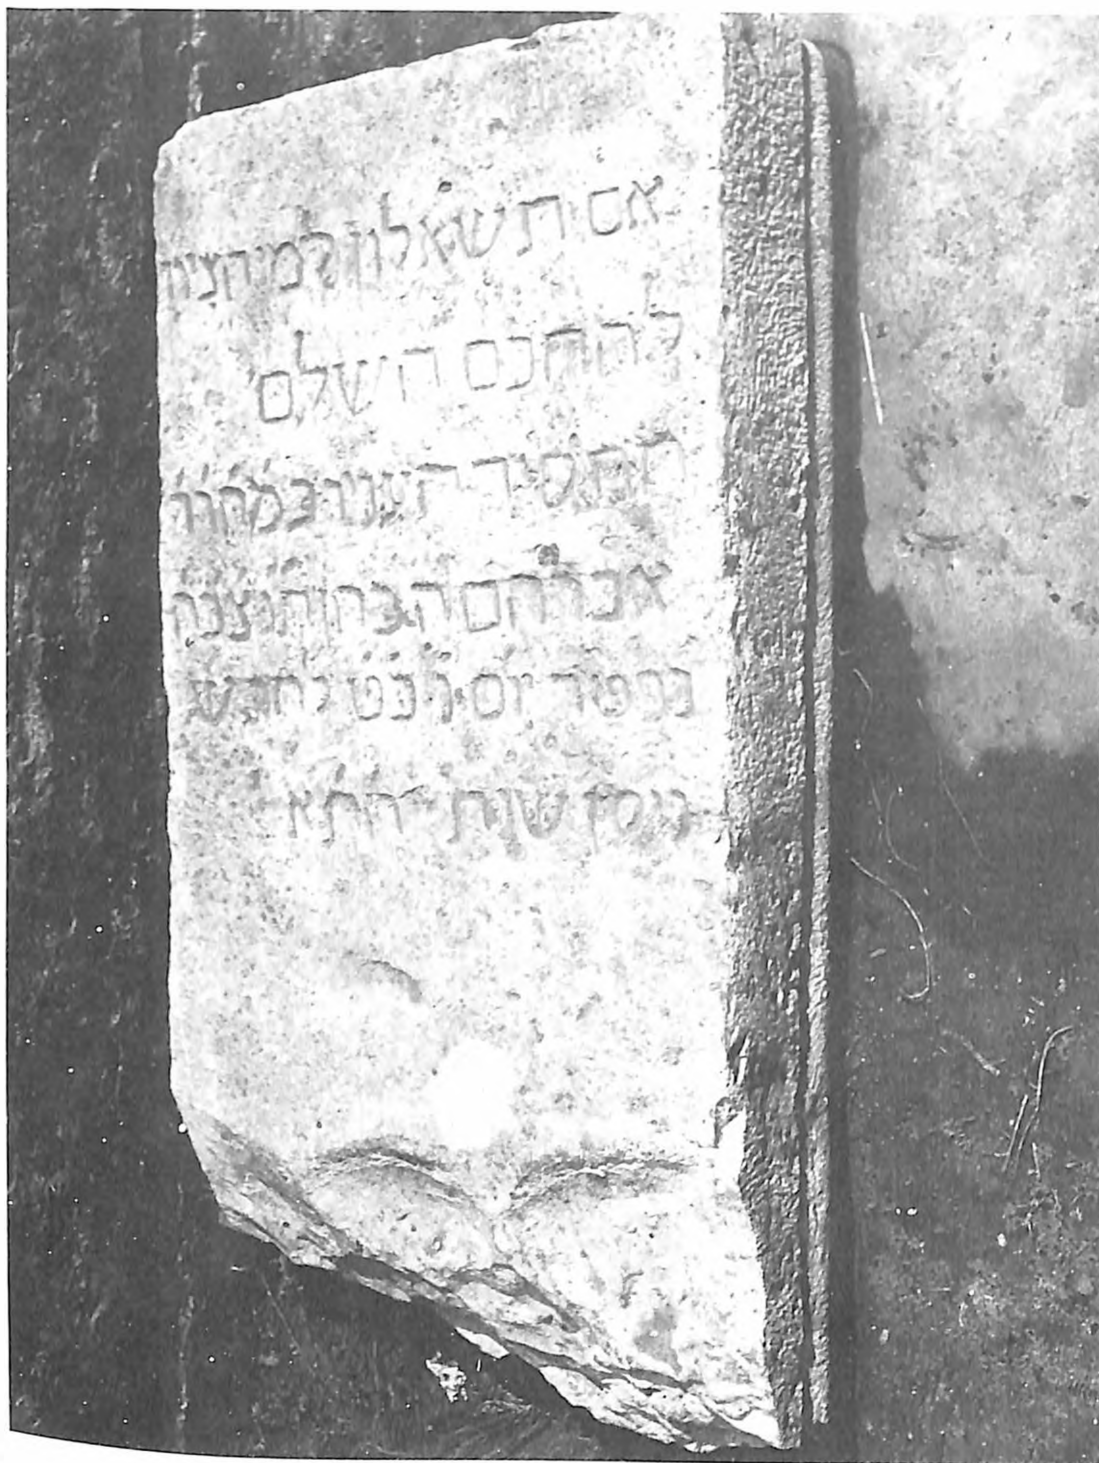 אם תשאלון למי הציון
להחכם השלם
החסיד העניו כמהור
אברהם הכהן תנצבה
נפטר יום ו כט לחדש
ניסן שנת התא